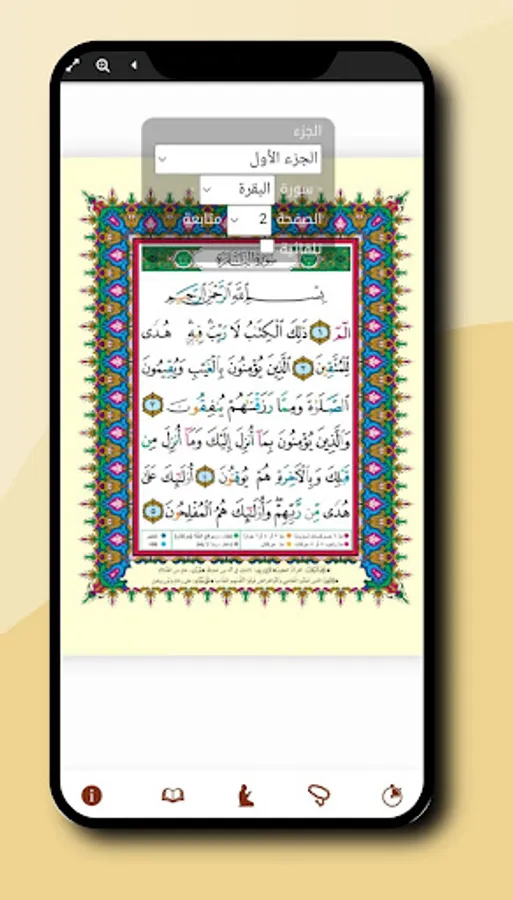 الجزء
الجزء الأول
سورة البقرة
الصفحة 2 متابعة
تلقائية
بِسْمِ ٱللَّهِ ٱلرَّحْمَٰنِ ٱلرَّحِيمِ
الٓمٓ ١ ذَٰلِكَ ٱلْكِتَٰبُ لَا رَيْبَ فِيهِ هُدًى
لِّلْمُتَّقِينَ ٢ ٱلَّذِينَ يُؤْمِنُونَ بِٱلْغَيْبِ وَيُقِيمُونَ
ٱلصَّلَوٰةَ وَمِمَّا رَزَقْنَٰهُمْ يُنفِقُونَ ٣
وَٱلَّذِينَ يُؤْمِنُونَ بِمَآ أُنزِلَ إِلَيْكَ وَمَآ أُنزِلَ مِن
قَبْلِكَ وَبِٱلْءَاخِرَةِ هُمْ يُوقِنُونَ ٤ أُو۟لَٰٓئِكَ عَلَىٰ
هُدًى مِّن رَّبِّهِمْ وَأُو۟لَٰٓئِكَ هُمُ ٱلْمُفْلِحُونَ ٥